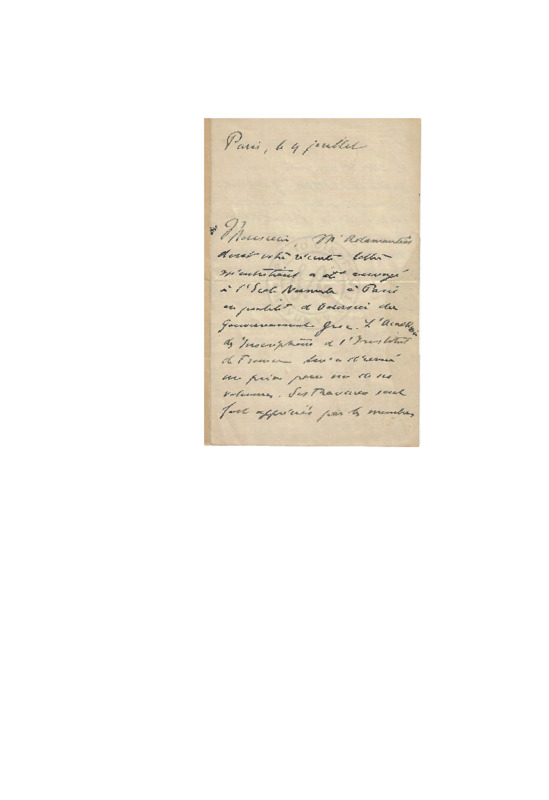 Paris, le 4 juillet
Monsieur, Mr Adamantios
dont votre récente lettre
m'entretient a été envoyé
à l'Ecole Normale à Paris
en qualité de boursier du
Gouvernement Grec. L'Académie
des Inscriptions de l'Institut
de France lui a décerné
un prix pour un de ses
volumes. Ses travaux sont
fort appréciés par les membres